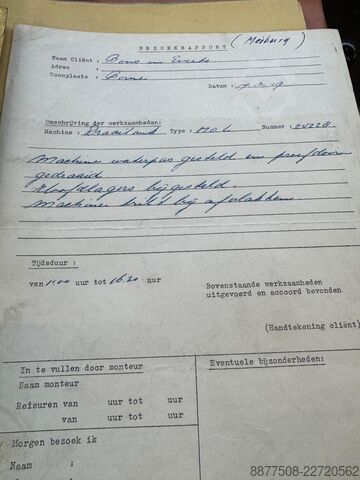 BEZOEKRAPPORT (Meiburg)
Naam Cliënt : Bons en Evers
Adres :
Woonplaats : Borne
Datum : 14.3.79
Omschrijving der werkzaamheden:
Machine : Draaibank Type : Nummer : 24228.
Machine waterpas gesteld en proefdoorn
gedraaid.
Hoofdlagers bijgesteld.
Machine trilt bij afvlakken.
Tijdsduur :
van 1.00 uur tot 16.30 uur
Bovenstaande werkzaamheden
uitgevoerd en accoord bevonden
(Handtekening cliënt)
In te vullen door monteur
Naam monteur
Reisuren van uur tot uur
van uur tot uur
Eventuele bijzonderheden:
Morgen bezoek ik
Naam :
8877508-22720562